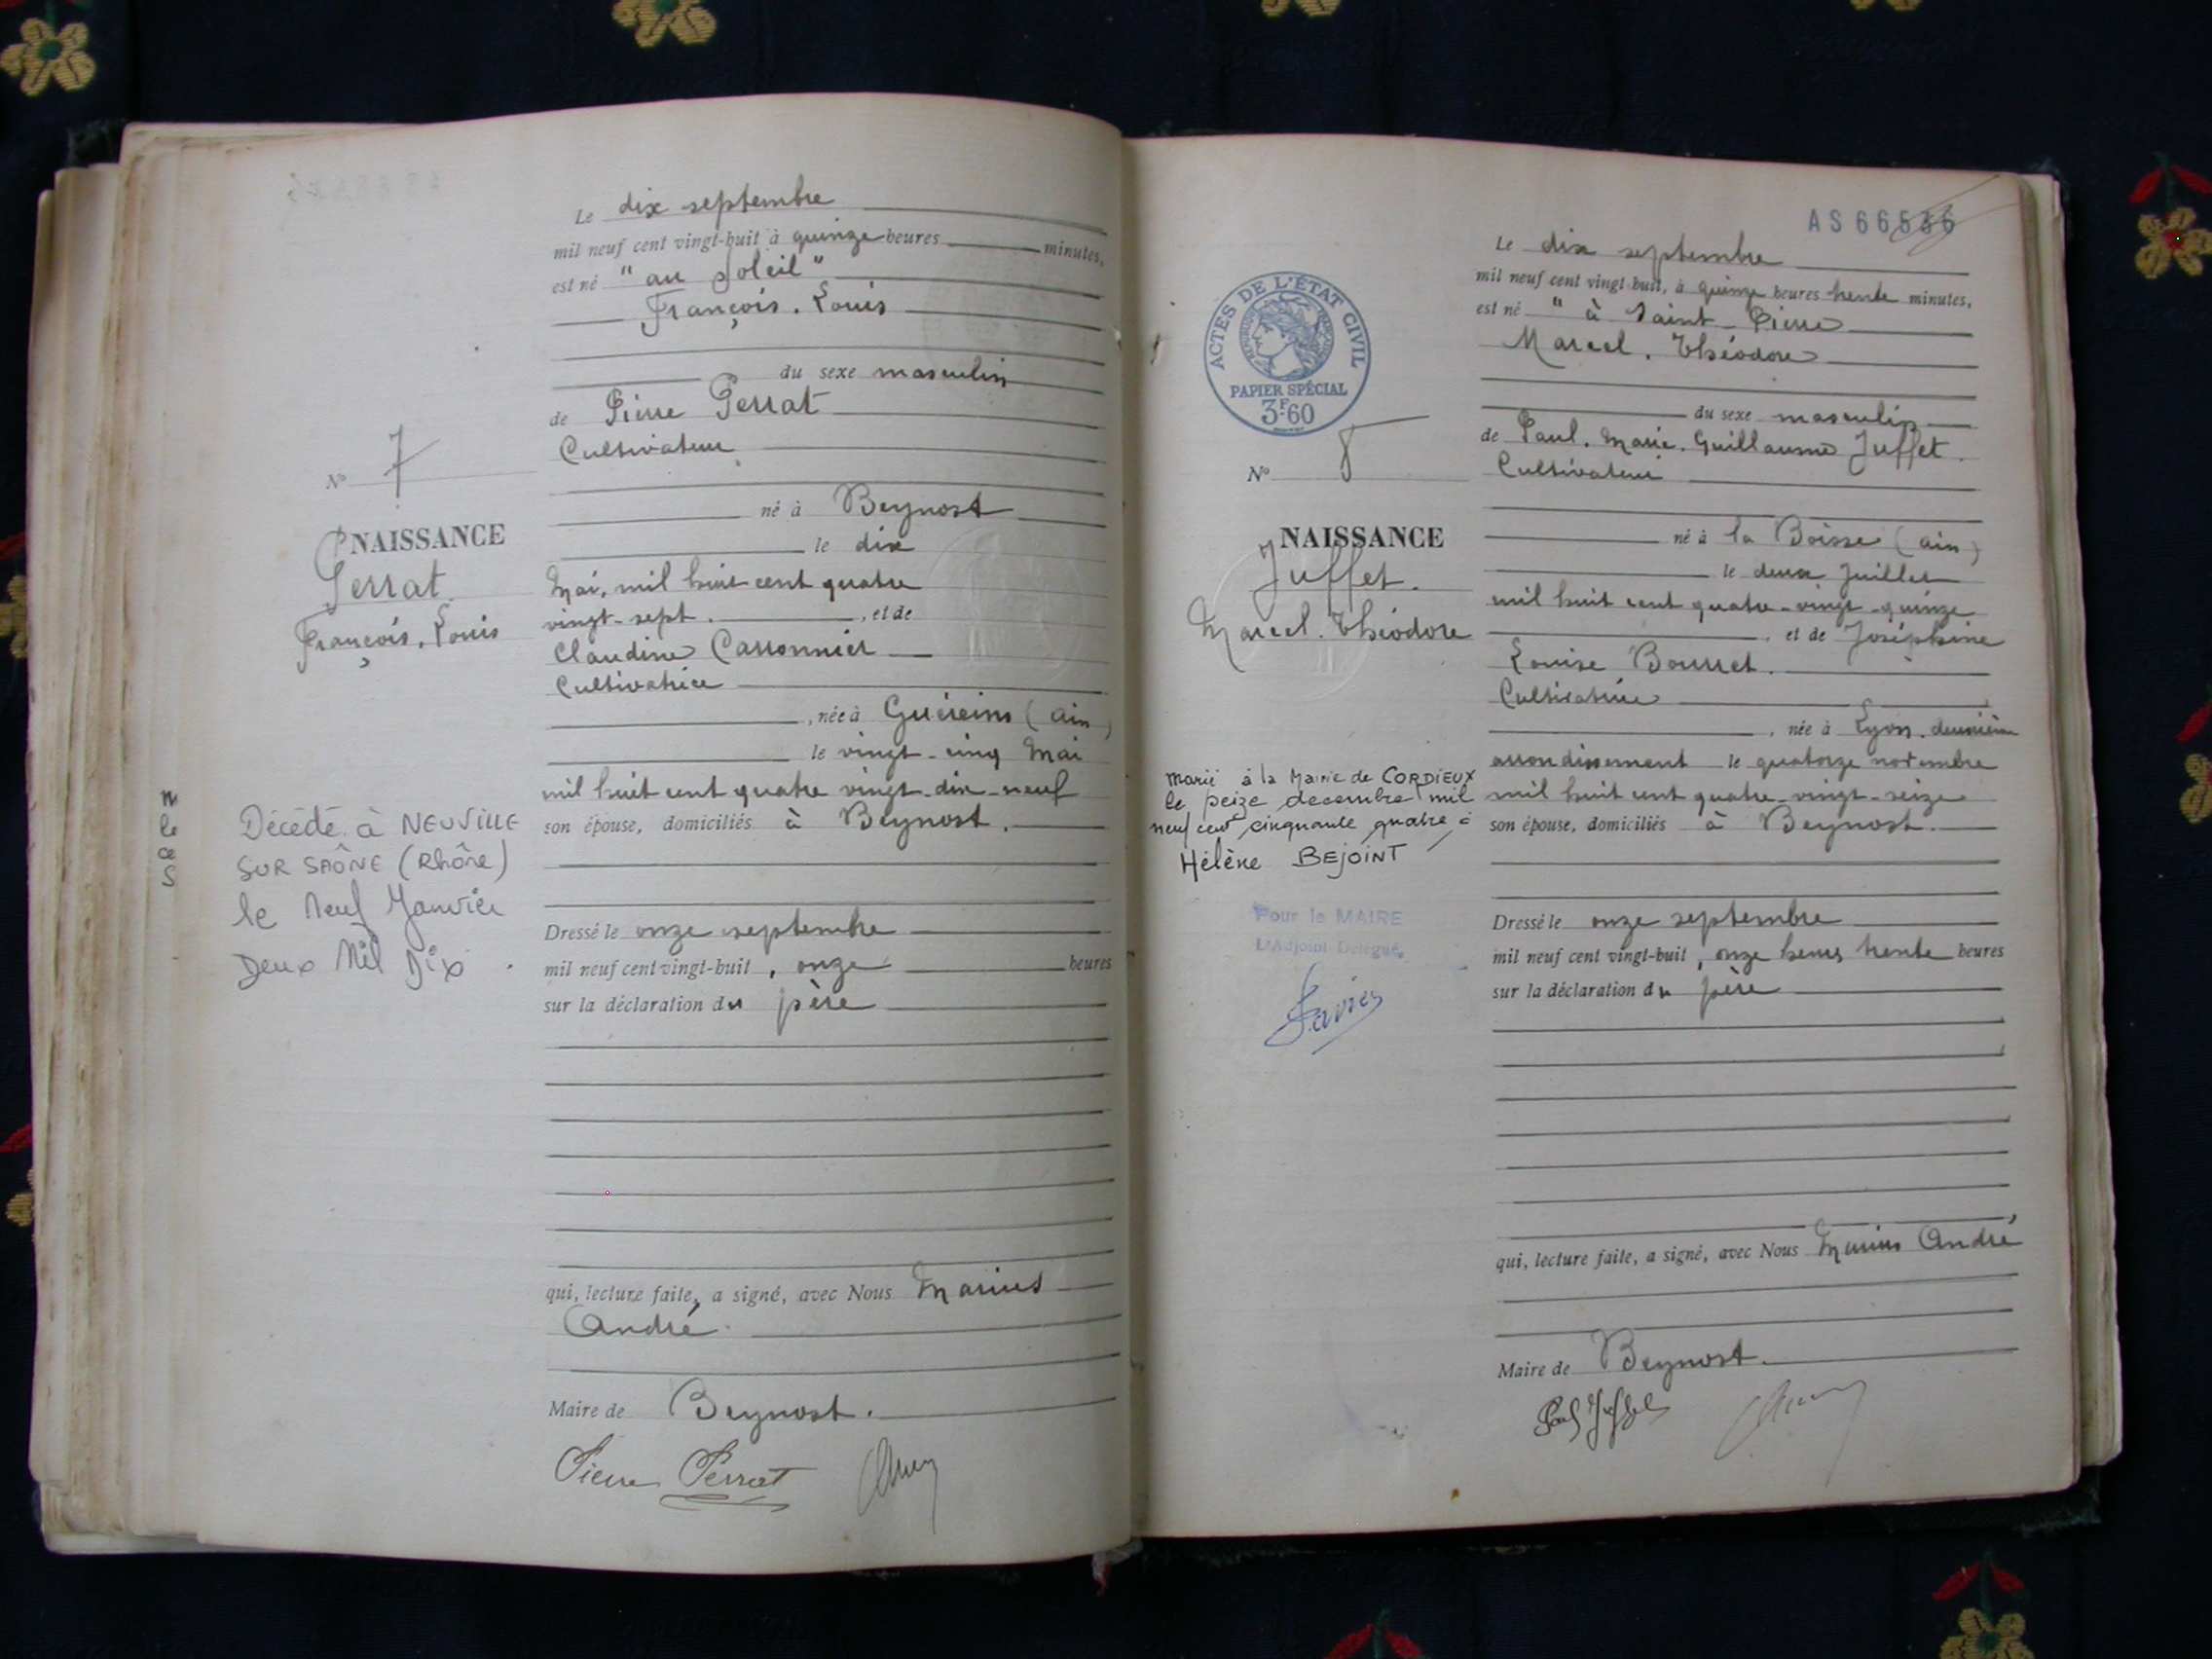 Le dix septembre
mil neuf cent vingt-huit à quinze heures minutes,
est né "au Soleil"
François. Louis
du sexe masculin
de Pierre Perrat
Cultivateur
né à Beynost
le dix
Mai, mil huit cent quatre
vingt-sept. , et de
Claudine Carronnier
Cultivatrice
, née à Guéreins (ain)
le vingt-cinq Mai
mil huit cent quatre vingt-dix-neuf
son épouse, domiciliés à Beynost.
Dressé le onze septembre
mil neuf cent vingt-huit, onze heures
sur la déclaration du père
qui, lecture faite, a signé, avec Nous Marius
André.
Maire de Beynost.
Pierre Perrat
N° 7
NAISSANCE
Perrat
François. Louis
Décédé à NEUVILLE
SUR SAÔNE (Rhône)
le Neuf Janvier
Deux Mil Dix.
AS 66536
Le dix septembre
mil neuf cent vingt-huit, à quinze heures trente minutes,
est né " à Saint-Pierre
Marcel. Théodore
du sexe masculin
de Paul. Marie. Guillaume Juffet.
Cultivateur
né à la Boisse (ain)
le deux Juillet
mil huit cent quatre-vingt-quinze
, et de Joséphine
Louise Bourret.
Cultivatrice
, née à Lyon. deuxième
arrondissement le quatorze novembre
mil huit cent quatre-vingt-seize
son épouse, domiciliés à Beynost.
Dressé le onze septembre
mil neuf cent vingt-huit, onze heures trente heures
sur la déclaration du père
qui, lecture faite, a signé, avec Nous Marius André
Maire de Beynost.
Paul Juffet
ACTES DE L'ÉTAT CIVIL
PAPIER SPÉCIAL
3F60
N° 8
NAISSANCE
Juffet.
Marcel. Théodore
Marié à la Mairie de CORDIEUX
le seize decembre mil
neuf cent cinquante quatre à
Hélène BEJOINT
Pour le MAIRE
L'Adjoint Délégué,